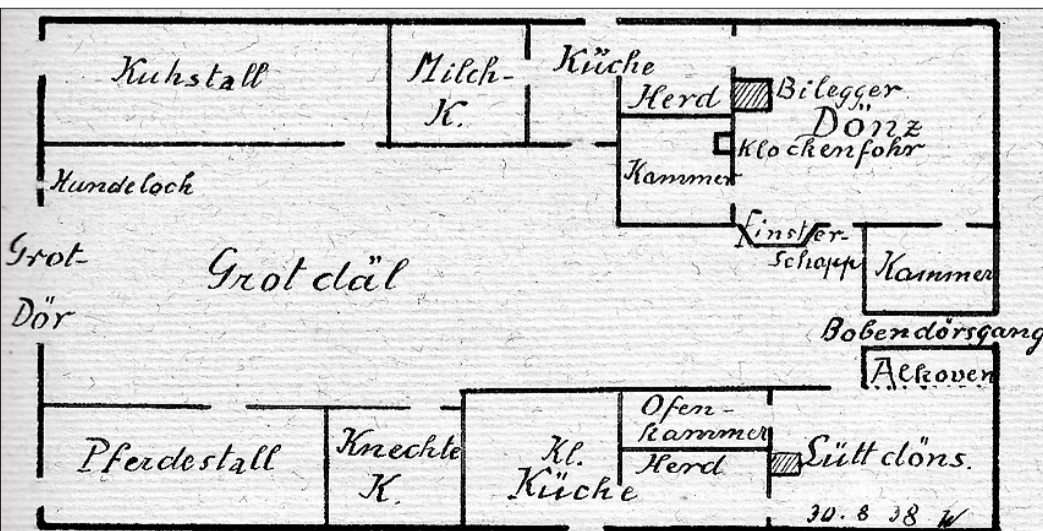 Kuhstall
Milch-
K.
Küche
Herd
Bilegger
Dönz
Klockenfohr
Kammer
Hundeloch
Finster-
schapp
Kammer
Grot-
Dör
Grotdäl
Bobendörsgang
Alkoven
Pferdestall
Knechte
K.
Kl.
Küche
Ofen-
kammer
Herd
Lüttdöns.
30. 8 38 W